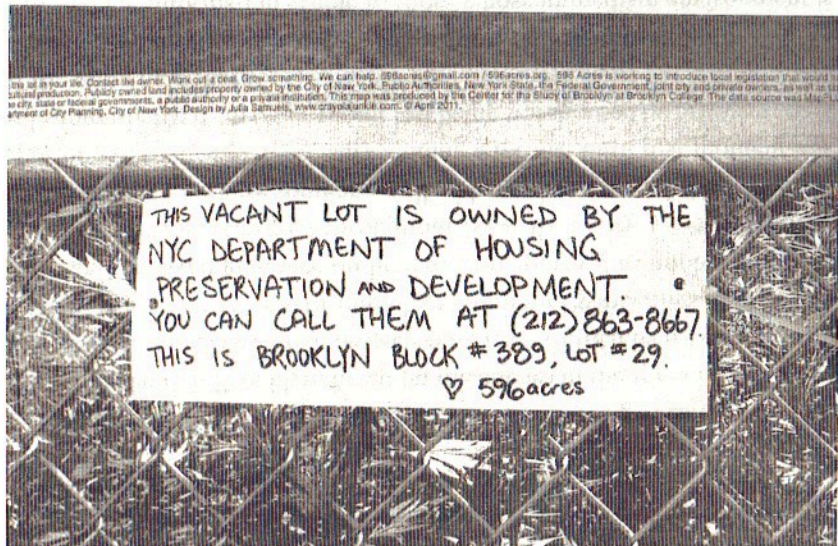 the lot in your life. Contact the owner. Work out a deal. Grow something. We can help. 596acres@gmail.com / 596acres.org. 596 Acres is working to introduce local legislation that would
production. Publicly owned land includes property owned by the City of New York, Public Authorities, New York State, the Federal Government, joint city and private owners, as well as
city, state or federal governments, a public authority or a private institution. This map was produced by the Center for the Study of Brooklyn at Brooklyn College. The data source was
of City Planning, City of New York. Design by Julia Samuels, © April 2011.
THIS VACANT LOT IS OWNED BY THE
NYC DEPARTMENT OF HOUSING
PRESERVATION AND DEVELOPMENT.
YOU CAN CALL THEM AT (212) 863-8667.
THIS IS BROOKLYN BLOCK # 389, LOT # 29.
♡ 596acres